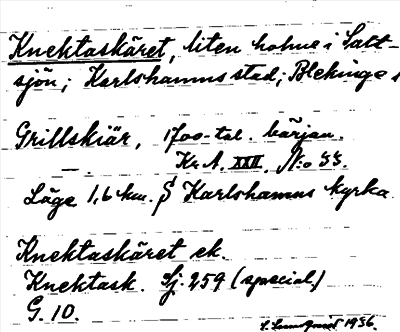 Knektaskäret, liten holme i Salt-
sjön; Karlshamns stad; Blekinge
Grillskiär, 1700-tal. början.
Kr. A. XXII. N:o 33.
Läge 1,6 km. S Karlshamns kyrka
Knektaskäret ek.
Knektask. Sj. 259 (special)
G. 10.
1936.